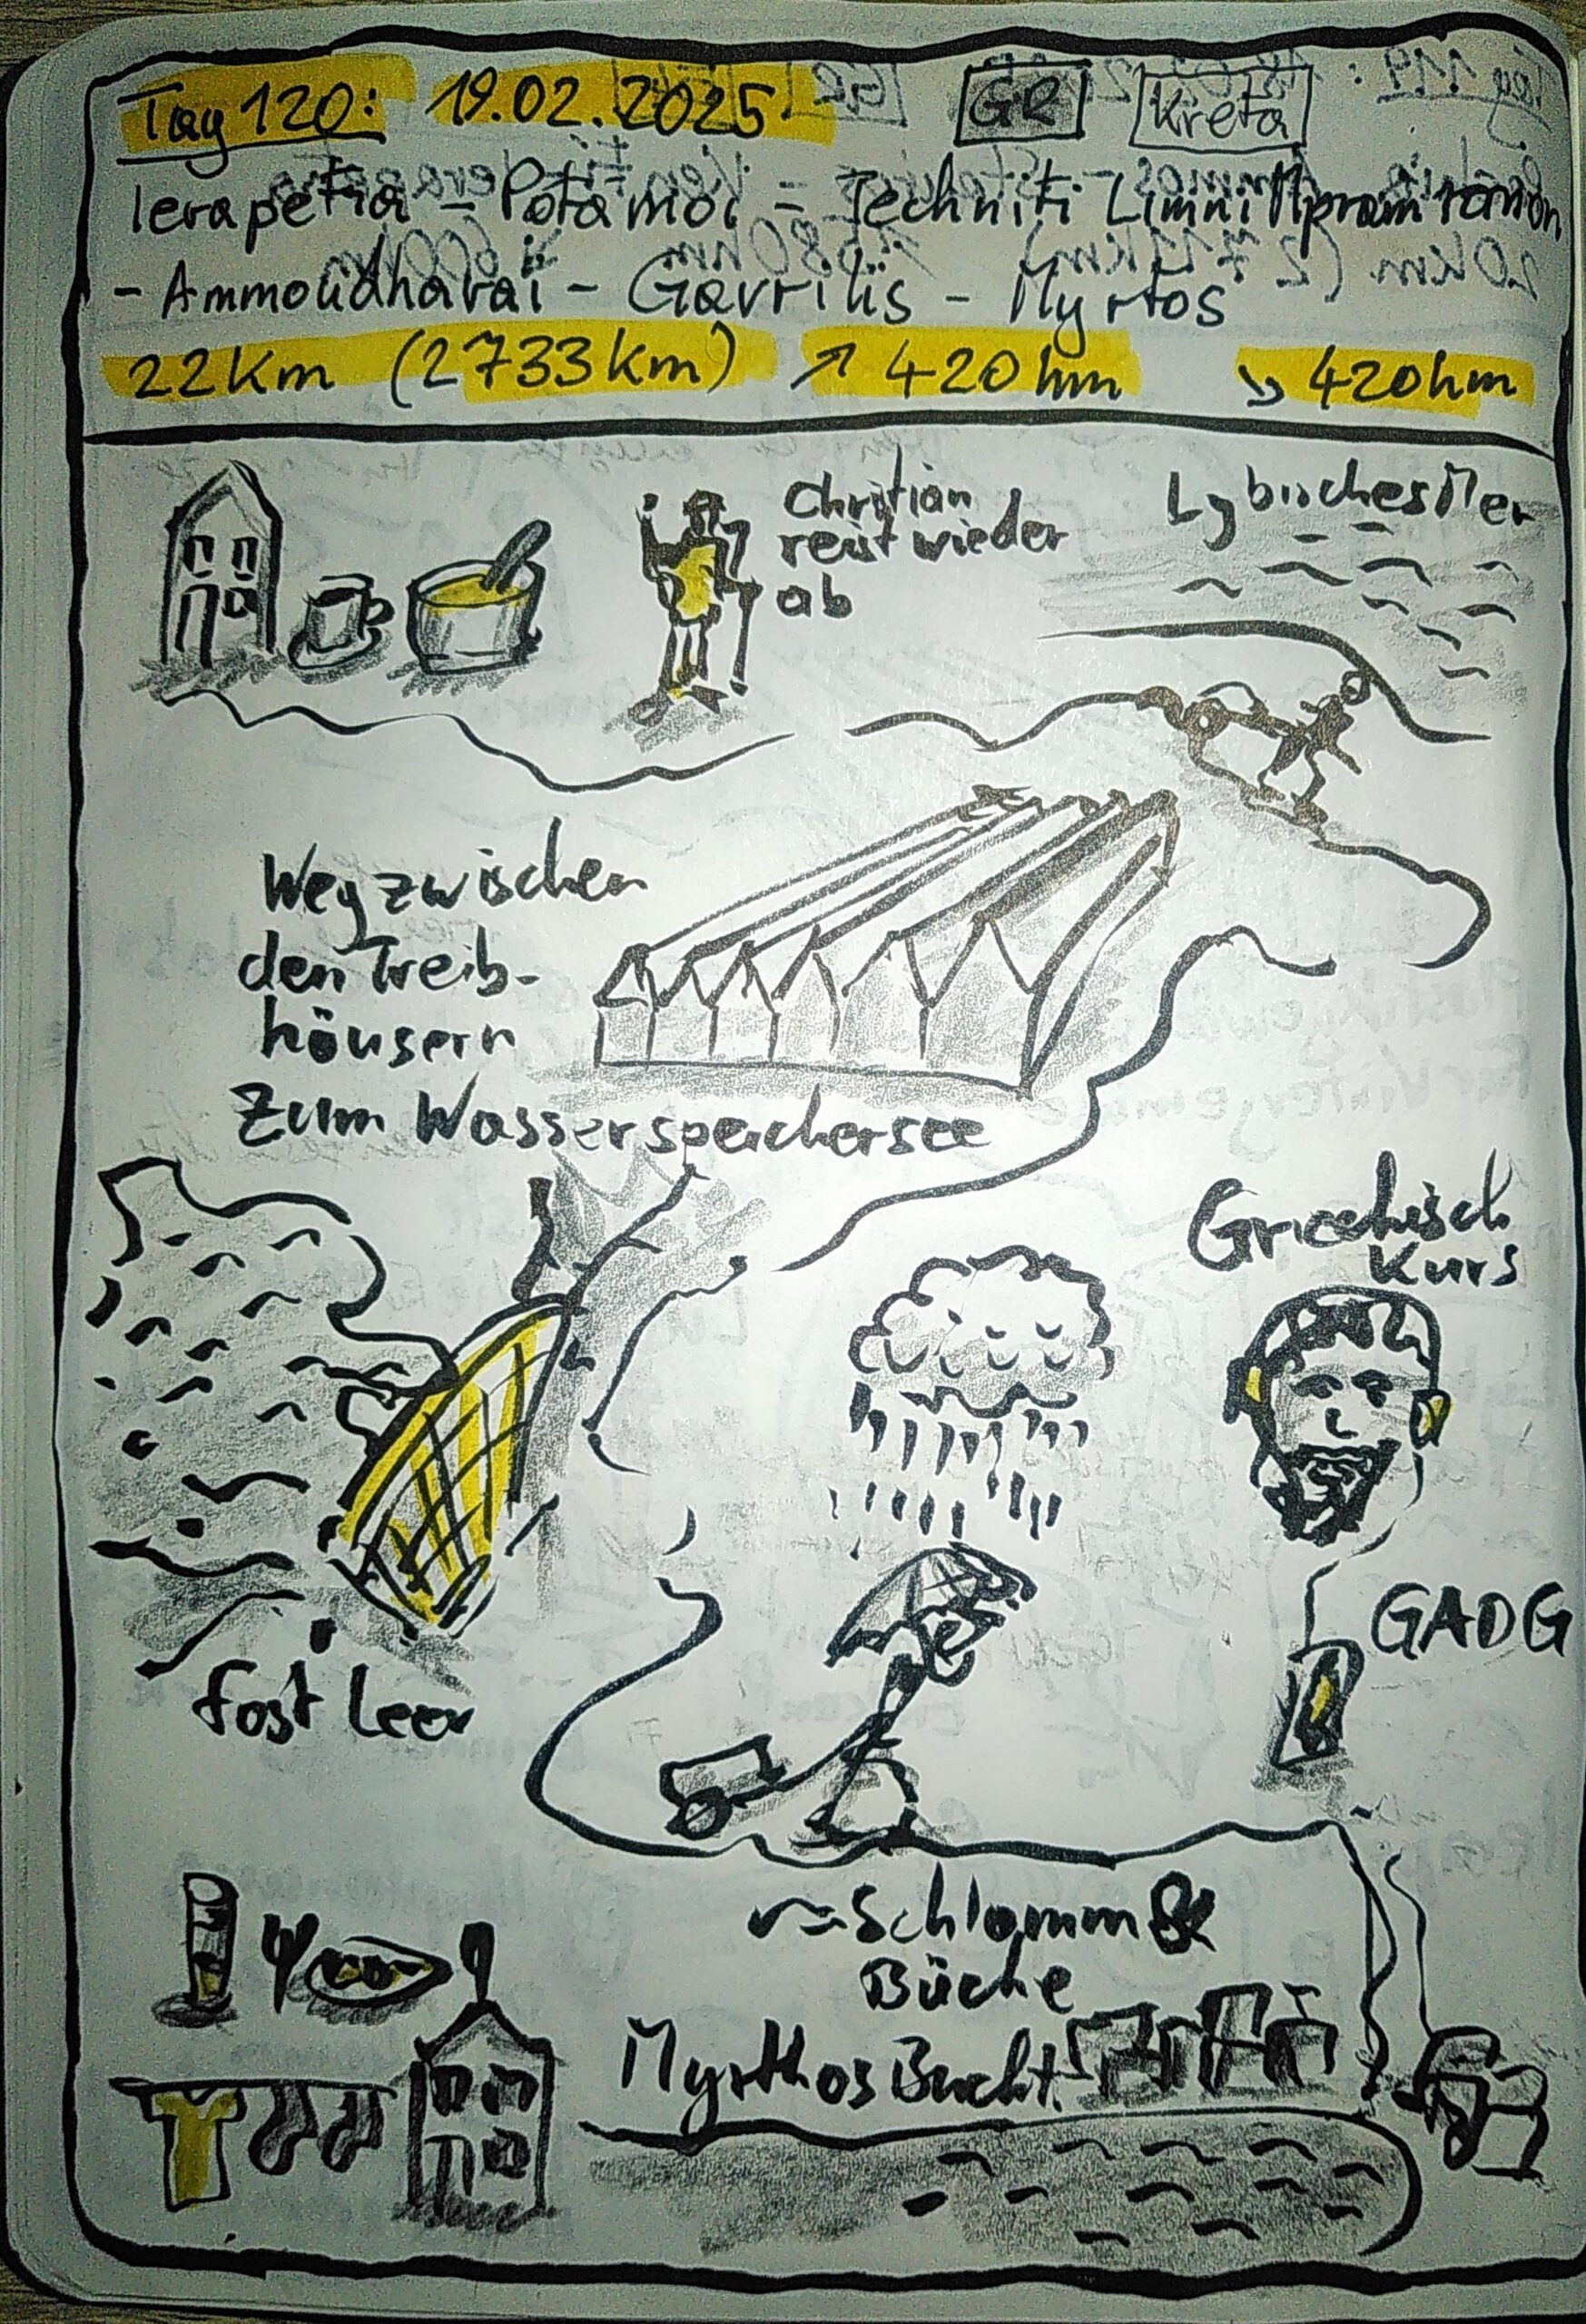 Tag 120: 19.02.2025 GR Kreta
Ierapetra - Potamoi - Techniti Limni
- Ammoudharai - Gavriliis - Myrtos
22km (2733km) ↗ 420hm ↘ 420hm
Christian
reist wieder
ab
Lybisches Meer
Weg zwischen
den Treib-
häusern
Zum Wasserspeichersee
Griechisch
Kurs
GADG
fast leer
Schlamm &
Bäche
Myrthos Bucht